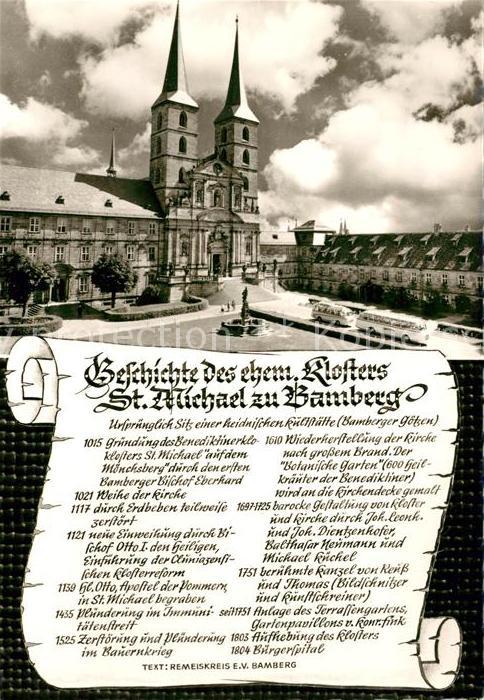 Geschichte des ehem. Klosters
St. Michael zu Bamberg
Ursprünglich Sitz einer heidnischen Kultstätte (Bamberger Götzen)
1015 Gründung des Benediktinerklo-
klosters St. Michael "auf dem
Mönchsberg" durch den ersten
Bamberger Bischof Eberhard
1021 Weihe der Kirche
1117 durch Erdbeben teilweise
zerstört
1121 neue Einweihung durch Bi-
schof Otto I. den Heiligen,
Einführung der Cluniazensi-
schen Klosterreform
1139 Hl. Otto, Apostel der Pommern,
in St. Michael begraben
1435 Plünderung im Immuni-
tätenstreit
1525 Zerstörung und Plünderung
im Bauernkrieg
1610 Wiederherstellung der Kirche
nach großem Brand. Der
"Botanische Garten" (600 Heil-
kräuter der Benediktiner)
wird an die Kirchendecke gemalt
1697-1725 barocke Gestaltung von Kloster
und Kirche durch Joh. Leonh.
und Joh. Dientzenhofer,
Balthasar Neumann und
Michael Küchel
1751 berühmte Kanzel von Reuß
und Thomas (Bildschnitzer
und Kunstschreiner)
seit 1751 Anlage des Terrassengartens,
Gartenpavillons v. Konr. Fink
1803 Aufhebung des Klosters
1804 Bürgerspital
TEXT: REMEISKREIS E.V. BAMBERG